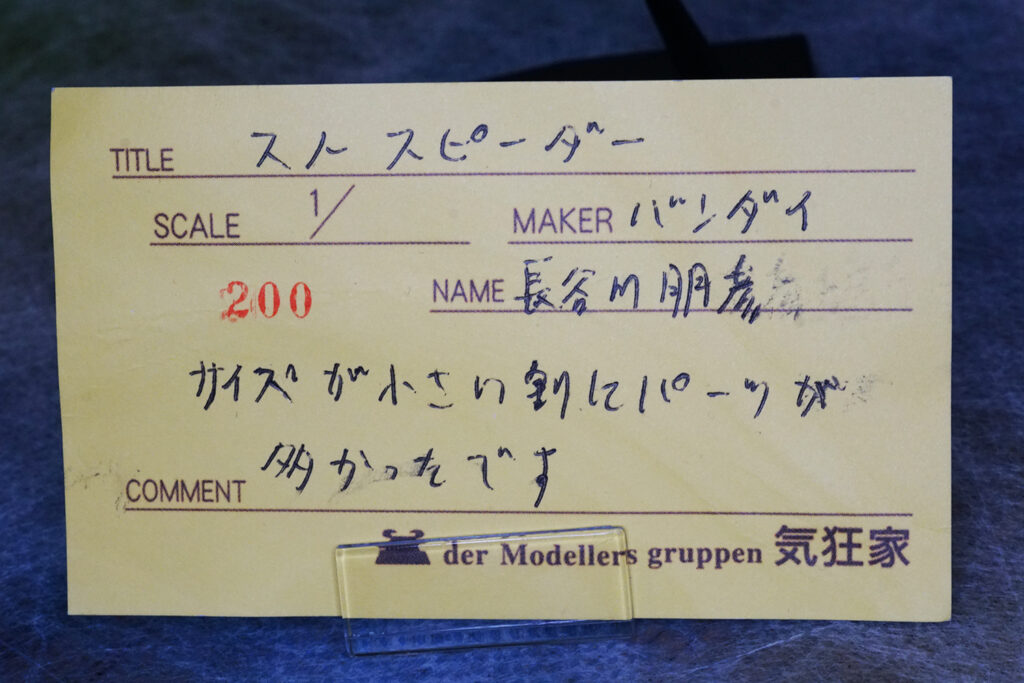 TITLE スノー スピーダー
SCALE 1/ MAKER バンダイ
200 NAME 長谷川 朋彦
サイズが小さい割にパーツが
多かったです
COMMENT
der Modellers gruppen 気狂家